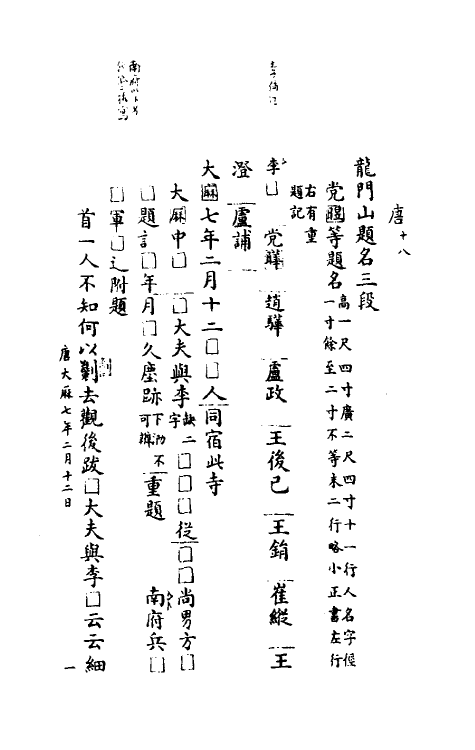 唐十八
龍門山題名三段
党曄等題名高一尺四寸廣二尺四寸十一行人名字徑一寸餘至二寸不等末二行略小正書左行
右有重題記
李□ 党曄 趙驊 盧政 王後己 王銷 崔縱 王
澄 盧誧
大厤七年二月十二□□人同宿此寺
大厤中□ □大夫與李缺二字□□□從□□尚男方□
□題記□年月□久塵跡下泐不可辨重題 南府兵□
□軍□辶附題
首一人不知何以劃去觀後跋□大夫與李□云云細
唐大厤七年二月十二日
一